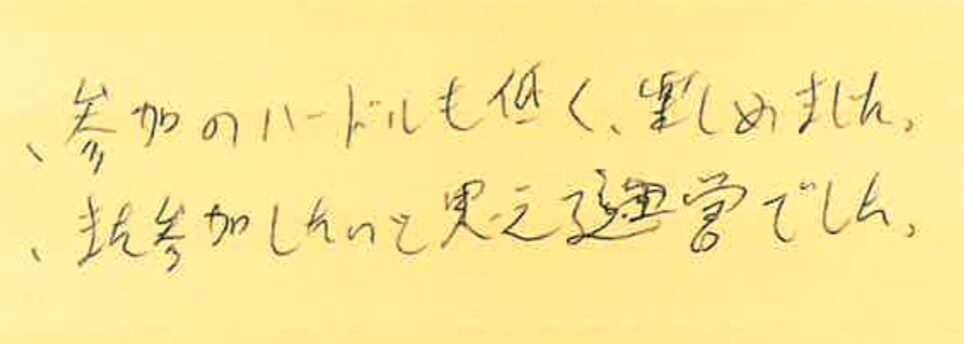 、参加のハードルも低く、楽しめました。
、また参加したいと思える運営でした。